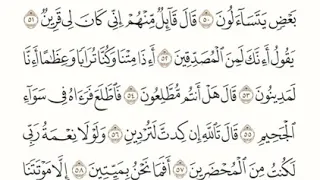 بَعْضٍ يَتَسَآءَلُونَ ٥٠ قَالَ قَآئِلٌ مِّنْهُمْ إِنِّى كَانَ لِى قَرِينٌ ٥١
يَقُولُ أَءِنَّكَ لَمِنَ ٱلْمُصَدِّقِينَ ٥٢ أَءِذَا مِتْنَا وَكُنَّا تُرَابًا وَعِظَٰمًا أَءِنَّا
لَمَدِينُونَ ٥٣ قَالَ هَلْ أَنتُم مُّطَّلِعُونَ ٥٤ فَٱطَّلَعَ فَرَءَاهُ فِى سَوَآءِ
ٱلْجَحِيمِ ٥٥ قَالَ تَٱللَّهِ إِن كِدتَّ لَتُرْدِينِ ٥٦ وَلَوْلَا نِعْمَةُ رَبِّى
لَكُنتُ مِنَ ٱلْمُحْضَرِينَ ٥٧ أَفَمَا نَحْنُ بِمَيِّتِينَ ٥٨ إِلَّا مَوْتَتَنَا